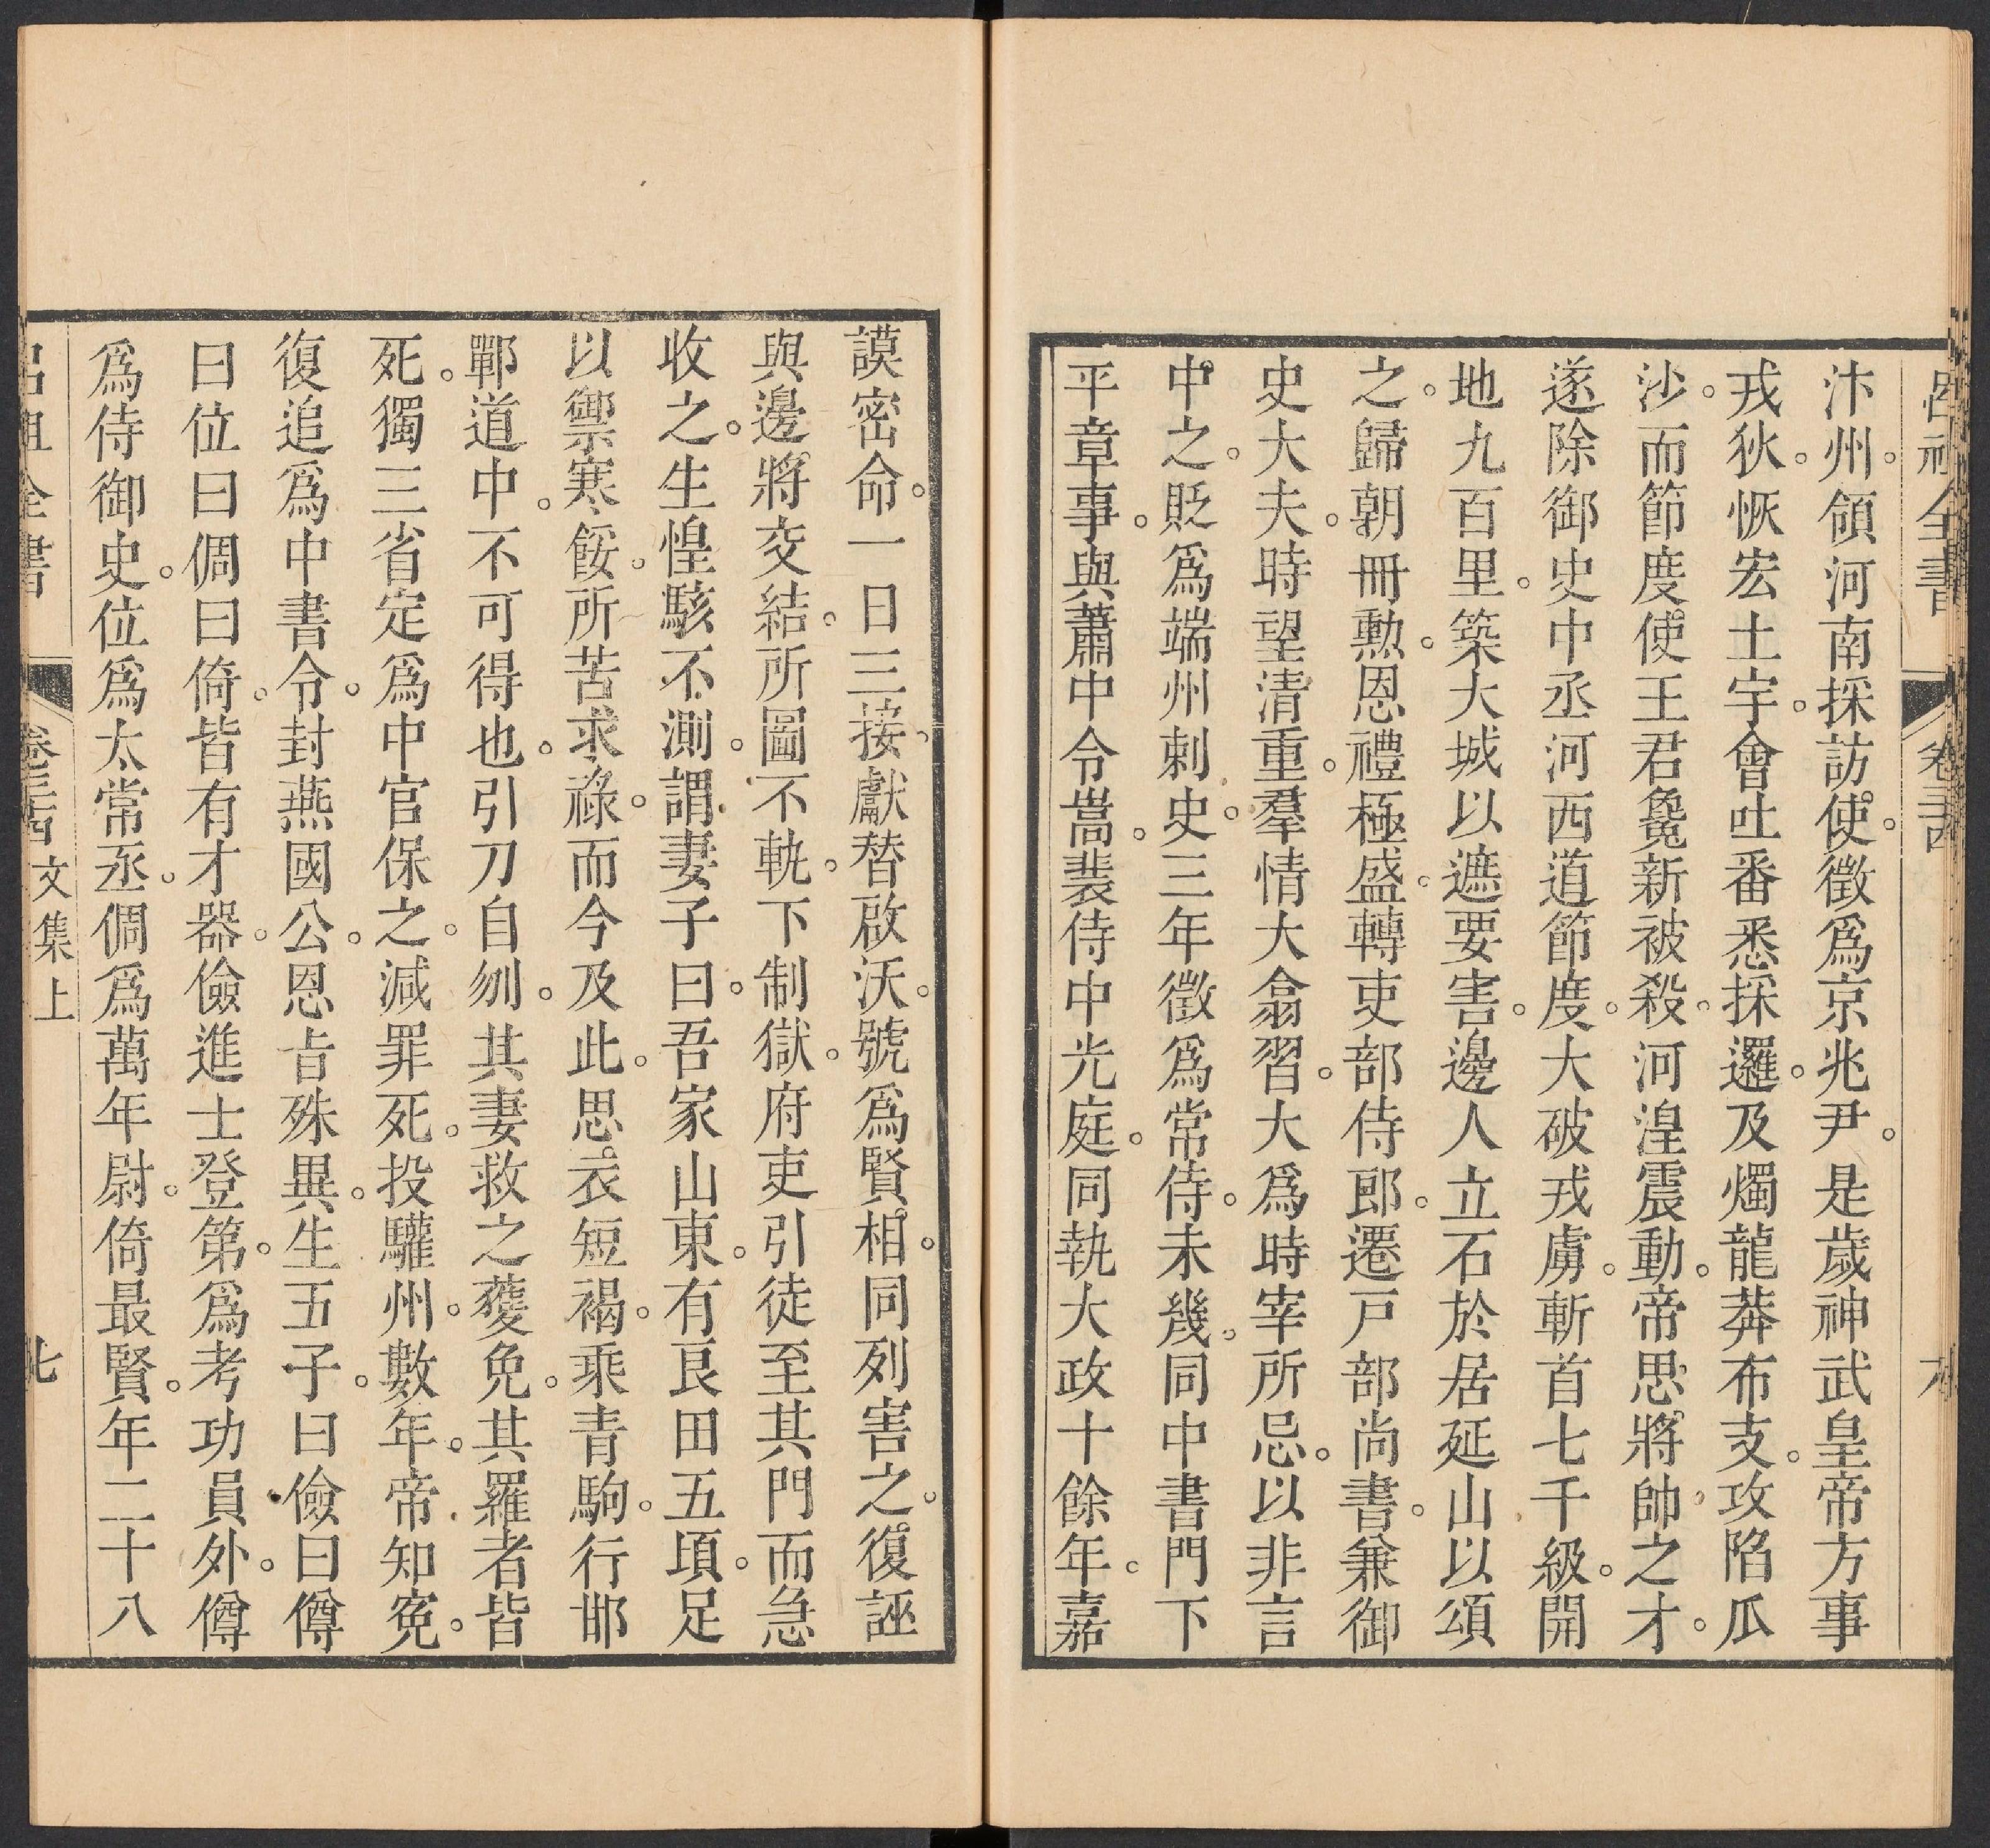 呂祖全書 卷三四
汴州。領河南採訪使。徵爲京兆尹。是歲神武皇帝方事
戎狄。恢宏土宇。會吐番悉採邏。及燭龍莾布支。攻陷瓜
沙。而節度使王君㚟新被殺。河湟震動。帝思將帥之才。
遂除御史中丞河西道節度。大破戎虜。斬首七千級。開
地九百里。築大城以遮要害。邊人立石於居延山以頌
之。歸朝冊勲。恩禮極盛。轉吏部侍郎。遷戸部尚書。兼御
史大夫。時望清重。羣情大翕習。大爲時宰所忌。以非言
中之。貶爲端州刺史。三年徵爲常侍。未幾。同中書門下
平章事。與蕭中令嵩。裴侍中光庭。同執大政十餘年。嘉
謨密命。一日三接。獻替啟沃。號爲賢相。同列害之。復誣
與邊將交結。所圖不軌。下制獄。府吏引徒至其門而急
收之。生惶駭不測。謂妻子曰。吾家山東。有良田五頃。足
以禦寒餒。所苦求祿。而今及此。思衣短褐。乘青駒。行邯
鄲道中。不可得也。引刀自刎。其妻救之獲免。其罹者皆
死。獨三省定爲中官保之。減罪死。投驩州。數年。帝知寃。
復追爲中書令。封燕國公。恩旨殊異。生五子。曰儉曰僔
曰位曰倜曰倚。皆有才器。儉進士登第。爲考功員外。僔
爲侍御史。位爲太常丞。倜爲萬年尉。倚最賢。年二十八
呂祖全書 卷三四 文集上 七